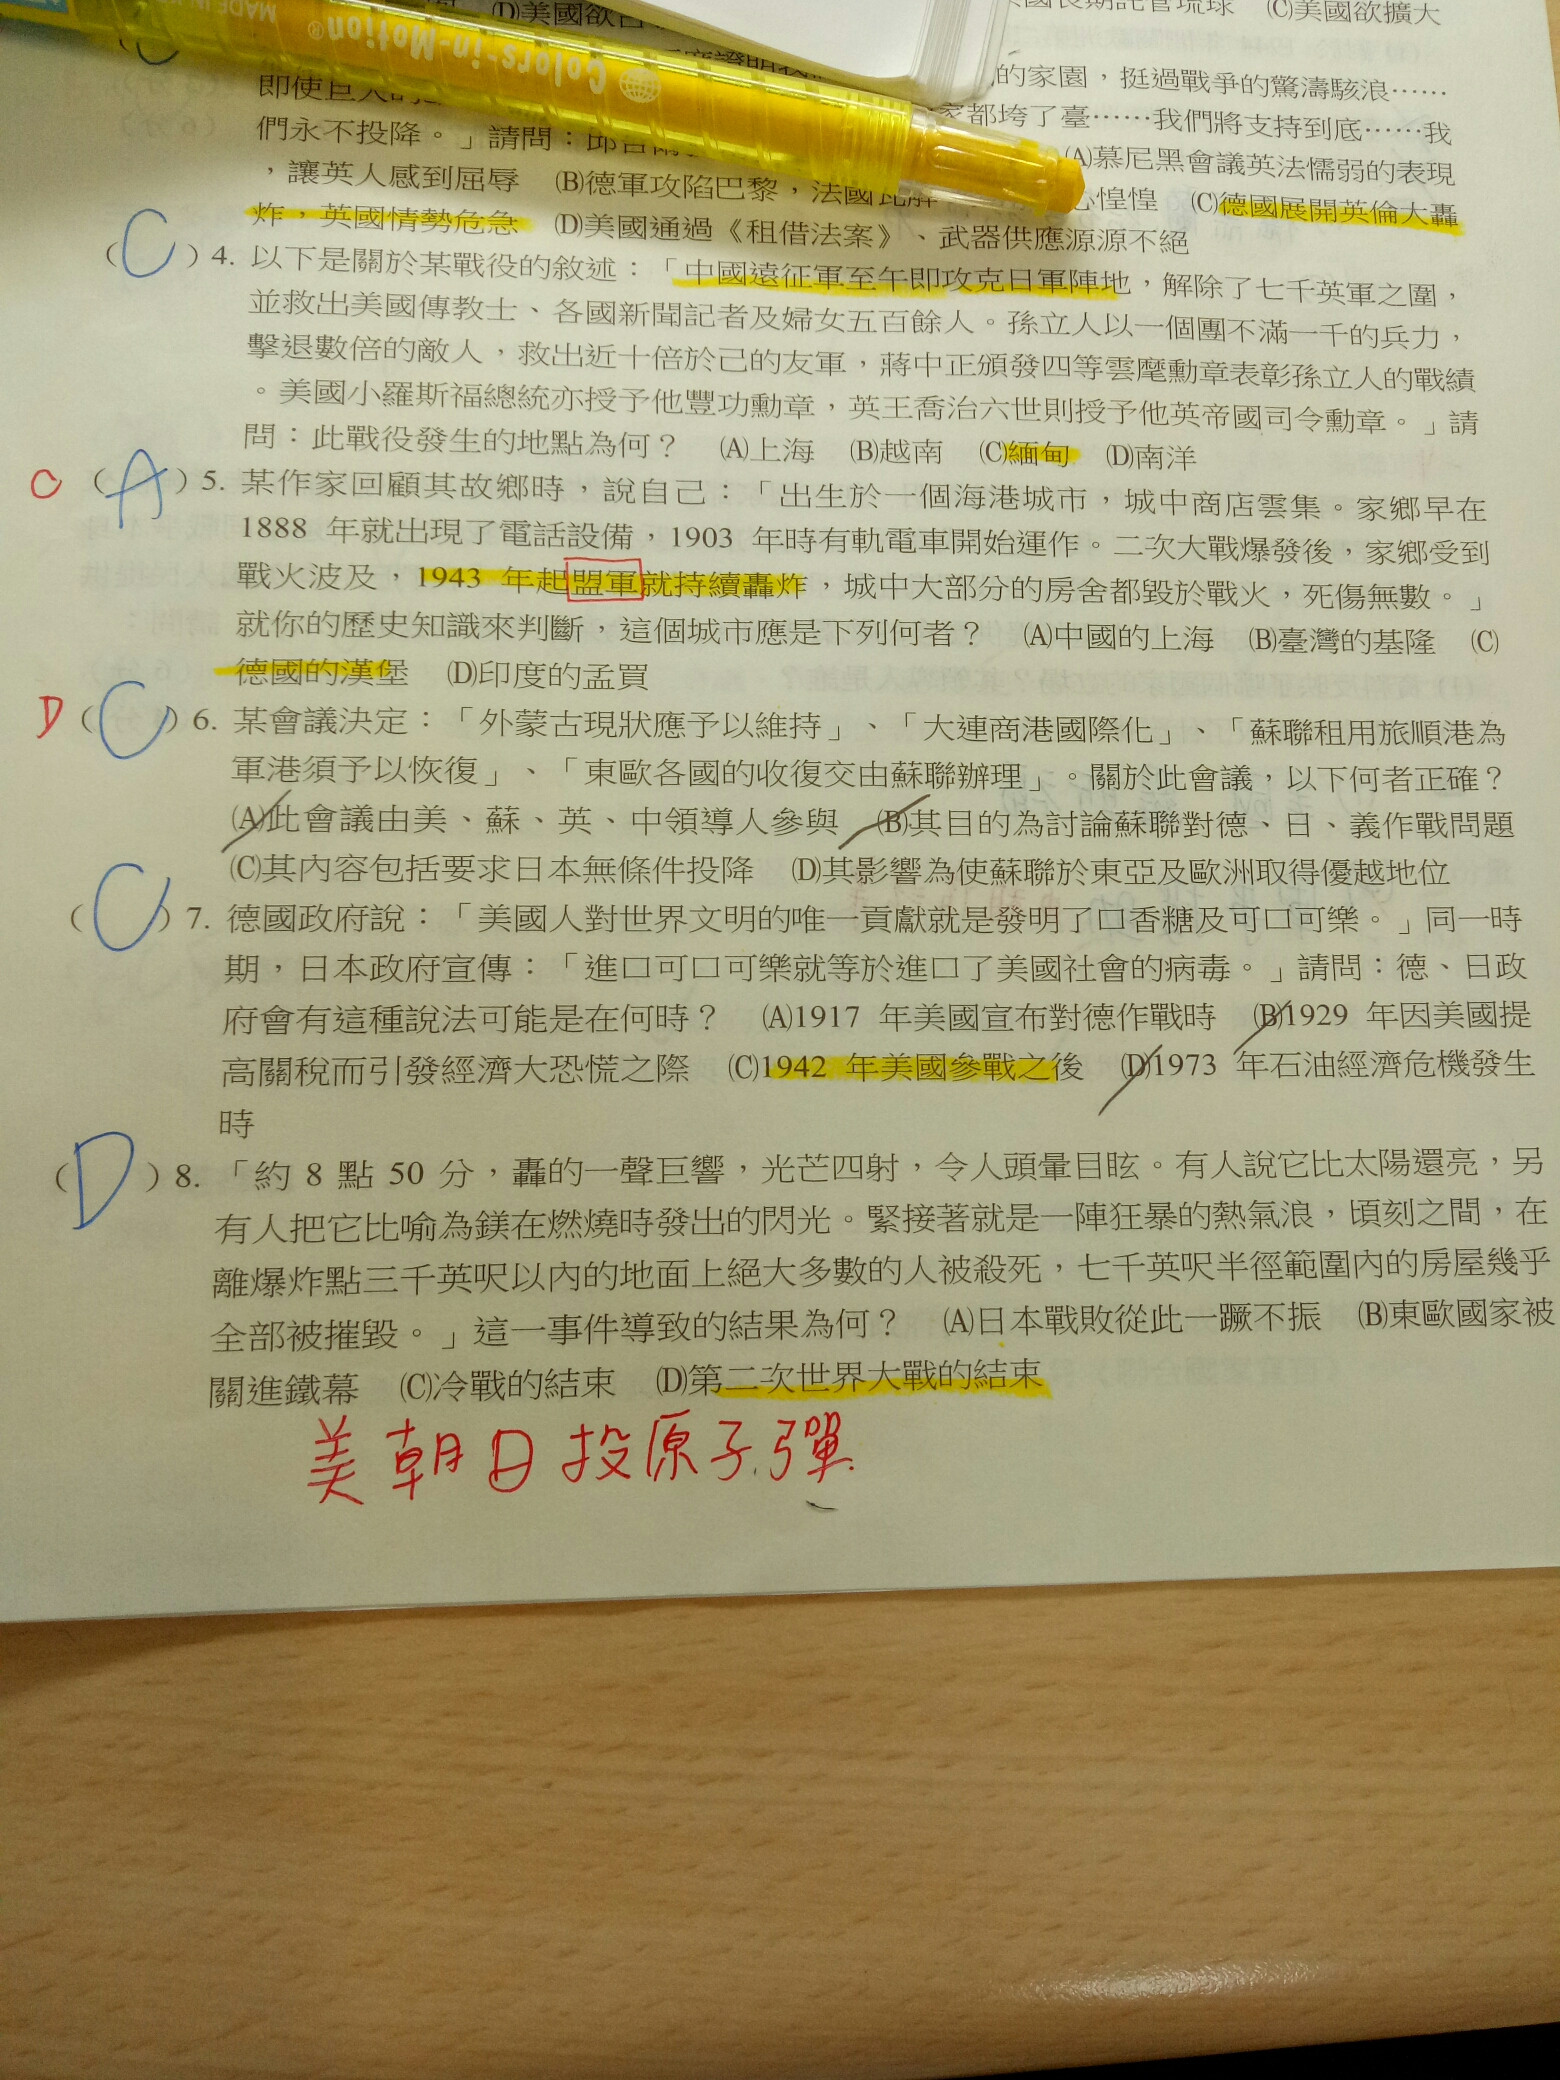 MADE IN
Colors-in-Motion®
(D)美國欲
國長期託管琉球 (C)美國欲擴大
證明我
的家園，挺過戰爭的驚濤駭浪……
即使巨大的
家都垮了臺……我們將支持到底……我
們永不投降。」請問：邱吉爾
(A)慕尼黑會議英法懦弱的表現
，讓英人感到屈辱 (B)德軍攻陷巴黎，法國瓦解
心惶惶 (C)德國展開英倫大轟
炸，英國情勢危急 (D)美國通過《租借法案》、武器供應源源不絕
(C)4. 以下是關於某戰役的敘述：「中國遠征軍至午即攻克日軍陣地，解除了七千英軍之圍，
並救出美國傳教士、各國新聞記者及婦女五百餘人。孫立人以一個團不滿一千的兵力，
擊退數倍的敵人，救出近十倍於己的友軍，蔣中正頒發四等雲麾勳章表彰孫立人的戰績
。美國小羅斯福總統亦授予他豐功勳章，英王喬治六世則授予他英帝國司令勳章。」請
問：此戰役發生的地點為何？ (A)上海 (B)越南 (C)緬甸 (D)南洋
C (A)5. 某作家回顧其故鄉時，說自己：「出生於一個海港城市，城中商店雲集。家鄉早在
1888 年就出現了電話設備，1903 年時有軌電車開始運作。二次大戰爆發後，家鄉受到
戰火波及，1943 年起盟軍就持續轟炸，城中大部分的房舍都毀於戰火，死傷無數。」
就你的歷史知識來判斷，這個城市應是下列何者？ (A)中國的上海 (B)臺灣的基隆 (C)
德國的漢堡 (D)印度的孟買
D (C)6. 某會議決定：「外蒙古現狀應予以維持」、「大連商港國際化」、「蘇聯租用旅順港為
軍港須予以恢復」、「東歐各國的收復交由蘇聯辦理」。關於此會議，以下何者正確？
(A)此會議由美、蘇、英、中領導人參與 (B)其目的為討論蘇聯對德、日、義作戰問題
(C)其內容包括要求日本無條件投降 (D)其影響為使蘇聯於東亞及歐洲取得優越地位
(C)7. 德國政府說：「美國人對世界文明的唯一貢獻就是發明了口香糖及可口可樂。」同一時
期，日本政府宣傳：「進口可口可樂就等於進口了美國社會的病毒。」請問：德、日政
府會有這種說法可能是在何時？ (A)1917 年美國宣布對德作戰時 (B)1929 年因美國提
高關稅而引發經濟大恐慌之際 (C)1942 年美國參戰之後 (D)1973 年石油經濟危機發生
時
(D)8. 「約 8 點 50 分，轟的一聲巨響，光芒四射，令人頭暈目眩。有人說它比太陽還亮，另
有人把它比喻為鎂在燃燒時發出的閃光。緊接著就是一陣狂暴的熱氣浪，頃刻之間，在
離爆炸點三千英呎以內的地面上絕大多數的人被殺死，七千英呎半徑範圍內的房屋幾乎
全部被摧毀。」這一事件導致的結果為何？ (A)日本戰敗從此一蹶不振 (B)東歐國家被
關進鐵幕 (C)冷戰的結束 (D)第二次世界大戰的結束
美朝日投原子彈